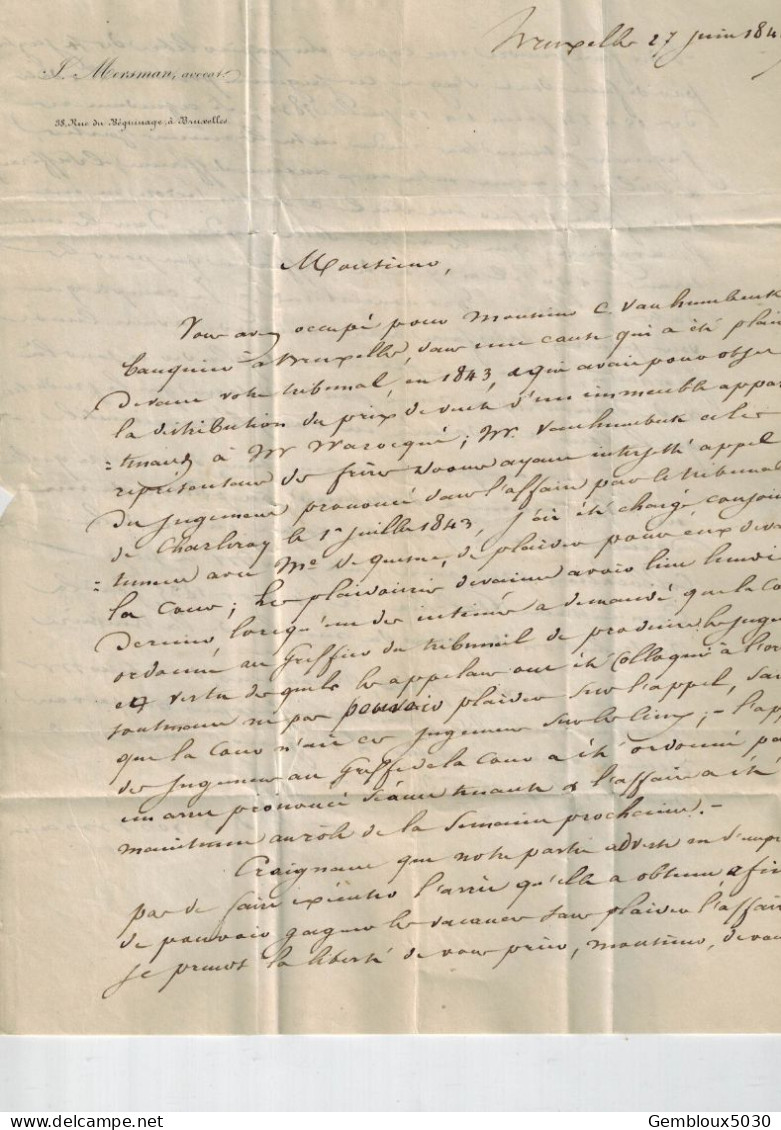 Bruxelles 27 juin 184
J. Mersman, avocat
38, Rue du Béguinage, à Bruxelles
Monsieur,
Vous avez occupé pour Monsieur C. Vanhumbeek
banquier à Bruxelles, dans une cause qui a été plai
devant votre tribunal, en 1843, & qui avait pour objet
la distribution du prix de vente d'un immeuble appar
=tenant à Mr Warocqué; Mr. Vanhumbeek et les
représentans de frère ayant interjetté appel
du jugement prononcé dans l'affaire par le tribunal
de Charleroy le 1r juillet 1843, j'ai été chargé, conjoin
=tement avec Me Dequesne, de plaider pour eux deva
la Cour; les plaidoiries devaient avoir lieu lundi
dernier, lorsqu'un des intimés a demandé que la Co
ordonné au Greffier du tribunal de produire le juge
en vertu desquels les appelans ont été colloqués à l'or
soutenant ne pas pouvoir plaider sur l'appel, sa
que la Cour n'ait ces jugemens sous les yeux; - l'app
des jugemens au Greffe de la Cour a été ordonné pa
un arrêt prononcé séance tenante & l'affaire a été
maintenue au rôle de la semaine prochaine. -
Craignant que notre partie adverse ne s'empr
pas de faire exécuter l'arrêt qu'elle a obtenu afin
de pouvoir gagner les vacances sans plaider l'affair
je prends la liberté de vous prier, monsieur, de vou
Gembloux5030